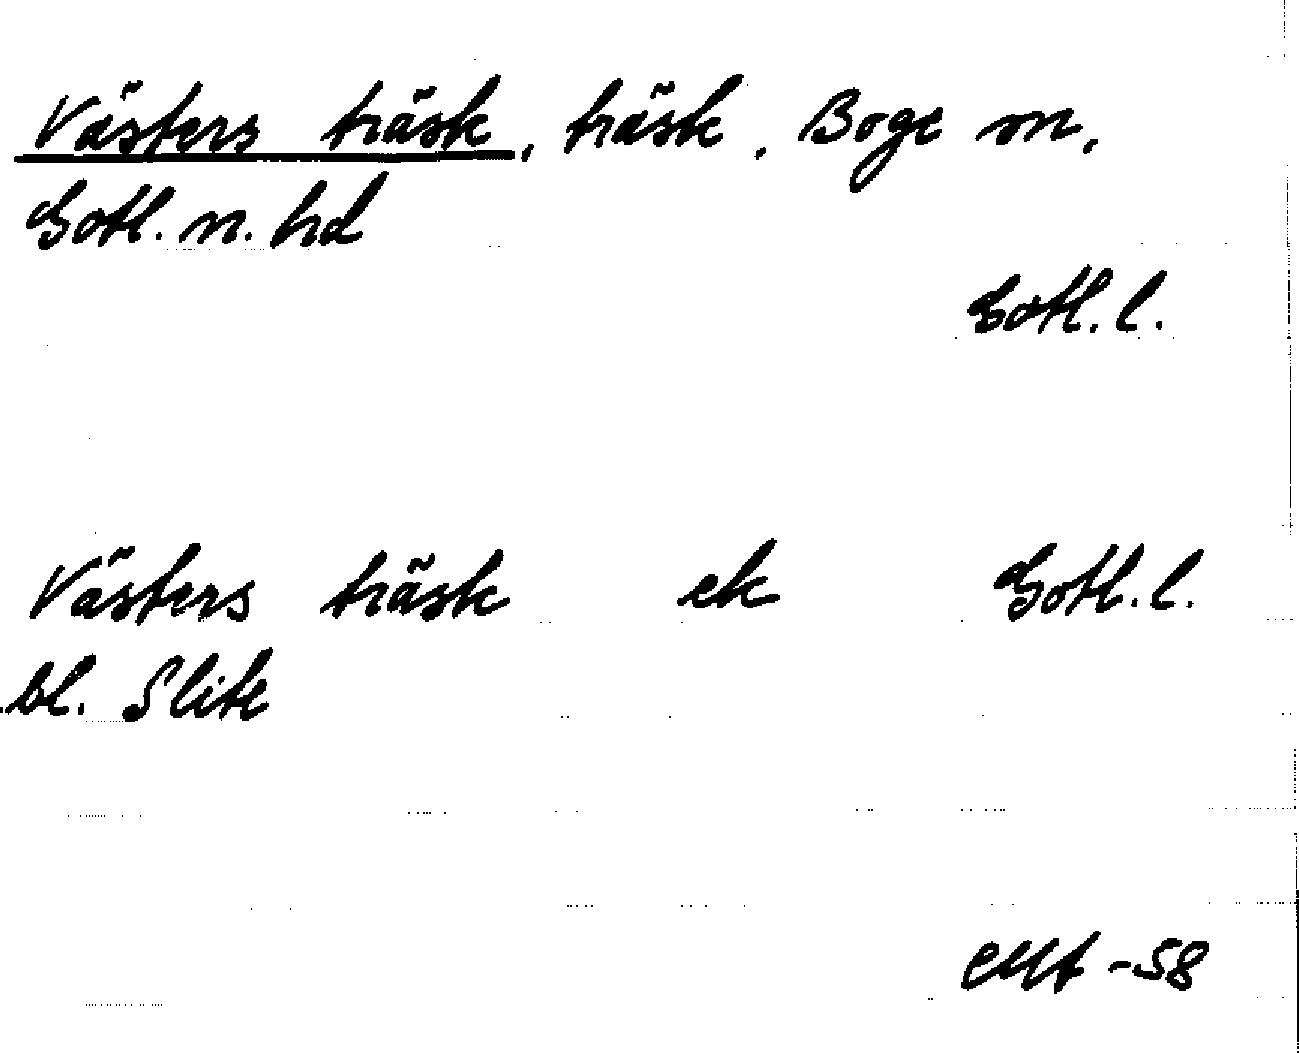 Västers träsk, träsk, Boge sn,
Gotl. n. hd
Gotl. l.
Västers träsk ek Gotl. l.
bl. Slite